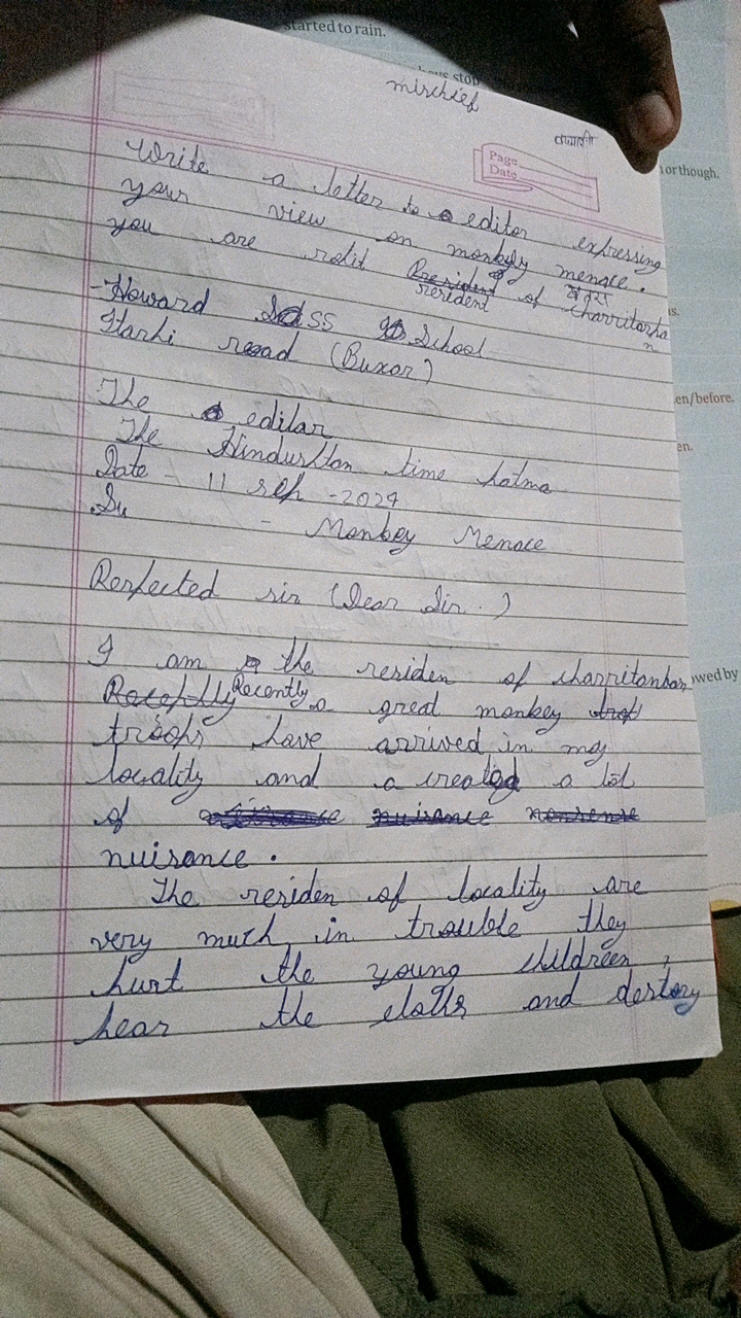 started to rain.
mischief
Page
Date
or though.
Write a letter to editor expressing
your view on monkey menace.
you are resident of Charritarba
n
- Howard SSS School
Itarhi road (Buxar)
en/before.
The editar
en.
The Hindustan time Patna
Date - 11 sep - 2024
Su - Monkey Menace
Respected sir (Dear Sir.)
I am the residen of charritanban
owed by
Recently a great monkey
troops have arrived in my
locality and a created a lot
of nuisance nonsense
nuisance.
The residen of locality are
very much in trouble they
hurt the young childreen,
tear the cloths and destory